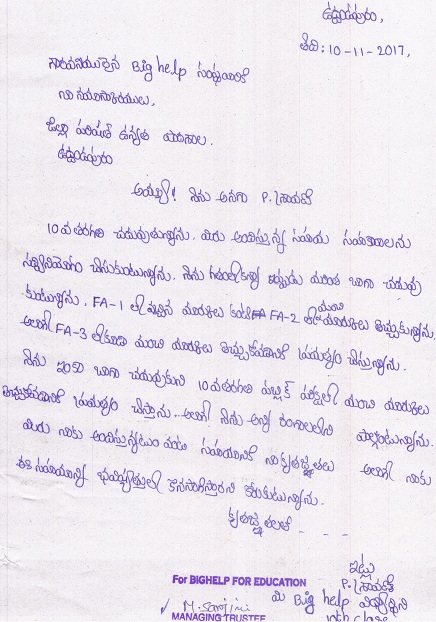 ఉద్దండపురం,
తేది: 10-11-2017,
గౌరవనీయులైన Big help సంస్థవారికి
నా నమస్కారములు,
జిల్లా పరిషత్ ఉన్నత పాఠశాల.
ఉద్దండపురం
అయ్యా! నేను అనగా P.
10వ తరగతి చదువుతున్నాను. మీరు అందిస్తున్న సహాయ సహకారాలను
సద్వినియోగం చేసుకుంటున్నాను. నేను గతంలోకన్నా ఇప్పుడు మరింత బాగా చదువు
కుంటున్నాను. FA-1 లో వచ్చిన మార్కులు కంటే FA-2 లో మంచి మార్కులు తెచ్చుకున్నాను.
అలాగే FA-3 లో కూడా మంచి మార్కులు తెచ్చుకోవడానికి ప్రయత్నం చేస్తున్నాను.
నేను ఇంకా బాగా చదువుకుని 10వ తరగతి పబ్లిక్ పరీక్షలో మంచి మార్కులు
తెచ్చుకోవడానికి ప్రయత్నం చేస్తాను. అలాగే నేను అన్ని రంగాలలోని పాల్గొంటున్నాను.
మీరు నాకు అందిస్తున్నటువంటి సహాయానికి నా కృతజ్ఞతలు అలాగే నాకు
ఈ సహాయాన్ని భవిష్యత్తులో కొనసాగిస్తారని కోరుకుటున్నాను.
కృతజ్ఞతలతో - - -
ఇట్లు
P.
మీ Big help విద్యార్థిని
10th class
For BIGHELP FOR EDUCATION
M. Sarojini
MANAGING TRUSTEE